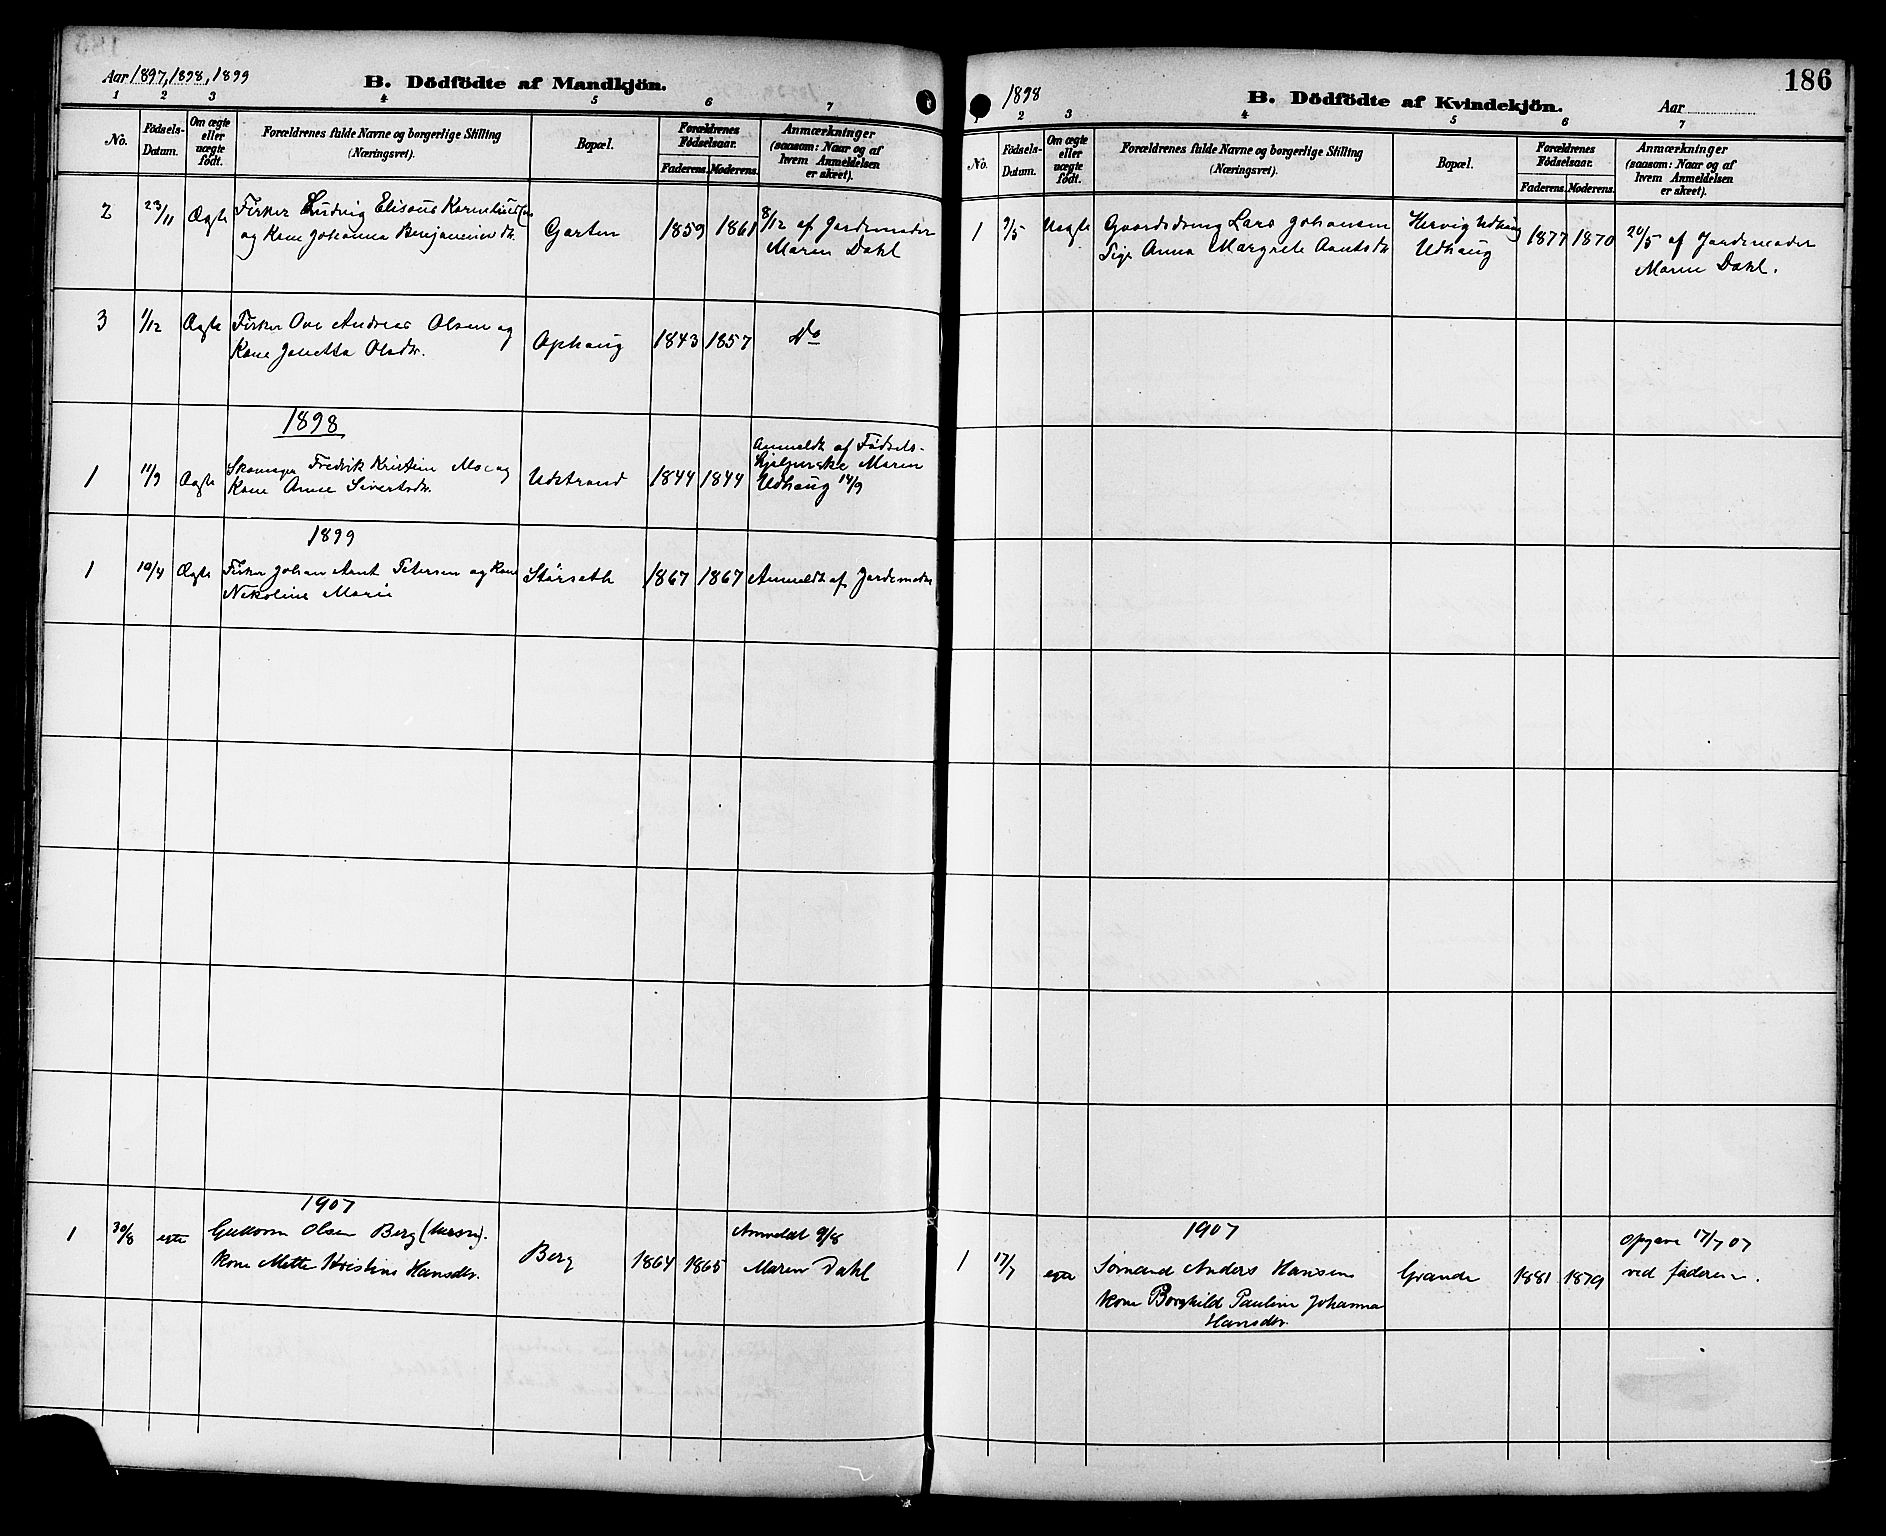 Aar 1897, 1898, 1899
B. Dödfödte af Mandkjön.
1 2 3 4 5 6 7
No.
Födsels-
Datum.
Om ægte
eller
uægte
født.
Forældrenes fulde Navne og borgerlige Stilling
(Næringsvei).
Bopæl.
Forældrenes
Födselsaar.
Faderens. Moderens.
Anmærkninger
(saasom: Naar og af
hvem Anmeldelsen
er skeet).
2 23/11 Ægte Fisker Ludvig Elisæus Kornelius
og Kone Johanna Benjaminsdtr.
Garten
1859 1861
8/12 af Jordemoder
Maren Dahl
3 1/12 Ægte Fisker Ove Andreas Olsen og
Kone Oldtr.
Ophaug
1843 1857
Do
1898
1 11/9 Ægte Skomager Fredrik Kristian Moe og
Kone Anne Sivertsdtr.
Udstrand
1844 1844
Anmeldt af Fødsels-
hjelperske Maren
Udhaug 14/9
1899
1 10/4 Ægte Fisker Johan Arnt Petersen og Kone
Nikoline Marie
Størseth
1867 1867
Anmeldt af Jordemoder
1907
1 30/8 egte Guttorm Olsen Berg
Kone Mette Kristine Hansdtr.
Berg
1864 1865
Anmeldt 9/8
Maren Dahl
186
1898
B. Dödfödte af Kvindekjön.
Aar
1 2 3 4 5 6 7
No.
Födsels-
Datum.
Om ægte
eller
uægte
födt.
Forældrenes fulde Navne og borgerlige Stilling
(Næringsvei).
Bopæl.
Forældrenes
Födselsaar.
Faderens. Moderens.
Anmærkninger
(saasom: Naar og af
hvem Anmeldelsen
er skeet).
1 9/5 Uægte Gaardsdreng Lars Johansen
Pige Anna Margrete Arntsdtr
Hervig Udhaug
Udhaug
1877 1870
20/5 af Jordemoder
Maren Dahl.
1907
1 17/7 egte Sømand Anders Hansen
Kone Borghild Pauline Johanna
Hansdtr.
Grande
1881 1879
Opgave 17/7 07
ved faderen.